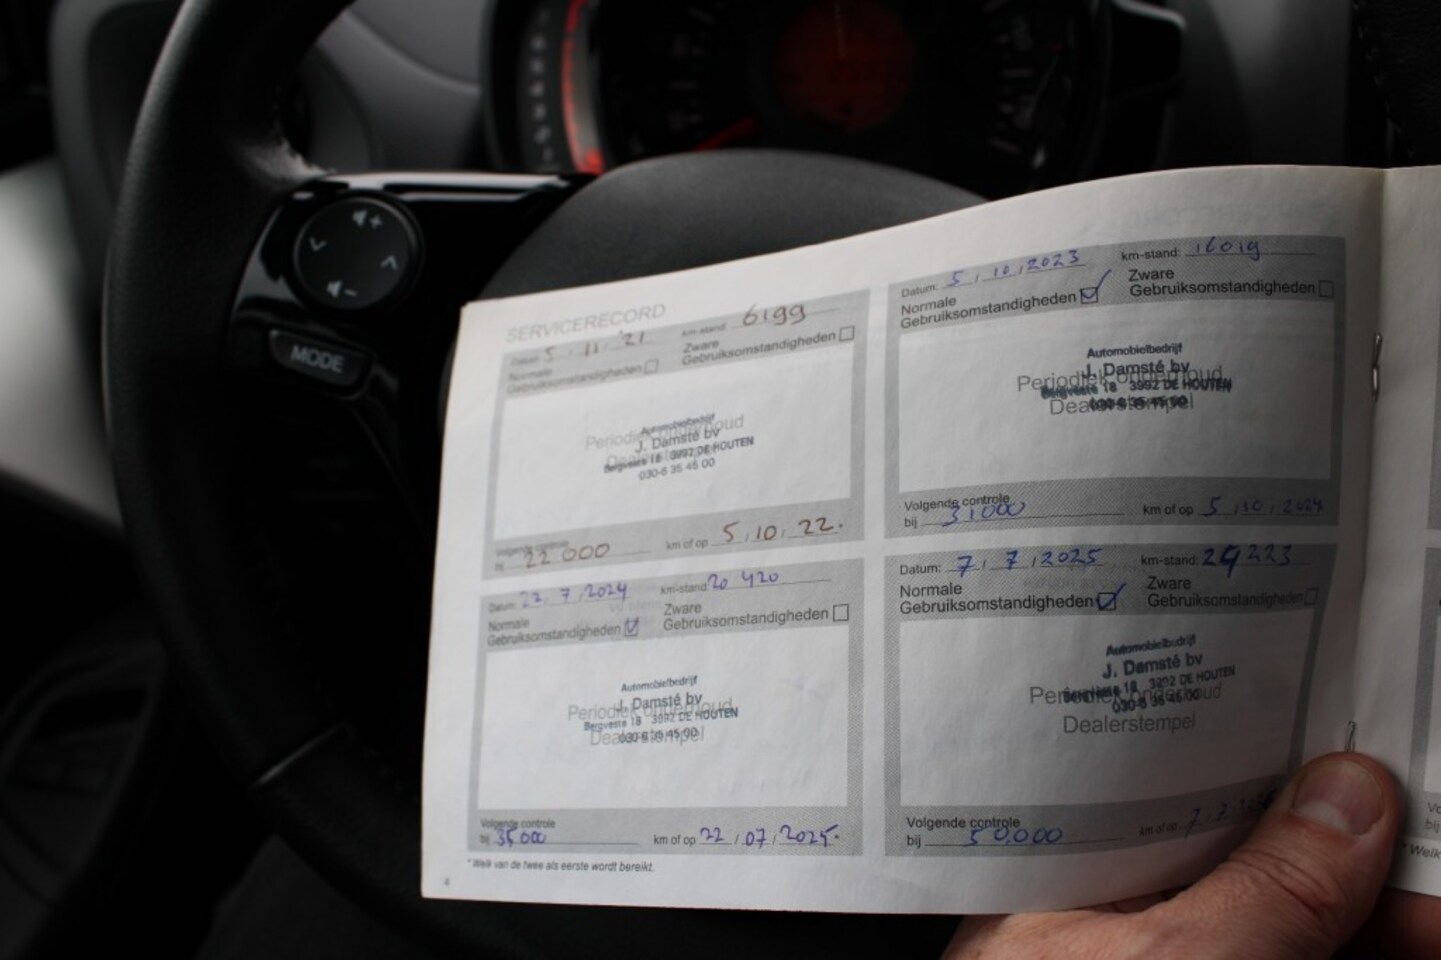 MODE
SERVICERECORD
Datum: 5 . 11 . '21 km-stand: 6199
Normale Gebruiksomstandigheden
Zware Gebruiksomstandigheden
Automobielbedrijf
Periodiek onderhoud
J. Damsté bv
Dealerstempel
Bergveste 18 3992 DE HOUTEN
030-6 35 45 00
Volgende controle
bij 22 000 km of op 5 . 10 . 22.
Datum: 5 . 10 . 2023 km-stand: 16019
Normale Gebruiksomstandigheden
Zware Gebruiksomstandigheden
Automobielbedrijf
J. Damsté bv
Periodiek onderhoud
Bergveste 18 3992 DE HOUTEN
030-6 35 45 00
Dealerstempel
Volgende controle
bij 31000 km of op 5 . 10 . 2024
Datum: 22 . 7 . 2024 km-stand: 20 420
Normale Gebruiksomstandigheden
Zware Gebruiksomstandigheden
Automobielbedrijf
J. Damsté bv
Periodiek onderhoud
Bergveste 18 3992 DE HOUTEN
030-6 35 45 00
Dealerstempel
Volgende controle
bij 35 000 km of op 22 / 07 / 2025.
Datum: 7 . 7 . 2025 km-stand: 29223
Normale Gebruiksomstandigheden
Zware Gebruiksomstandigheden
Automobielbedrijf
J. Damsté bv
Periodiek onderhoud
Bergveste 18 3992 DE HOUTEN
030-6 35 45 00
Dealerstempel
Volgende controle
bij 50.000 km of op 7 . 7 .
* Welk van de twee als eerste wordt bereikt.
4